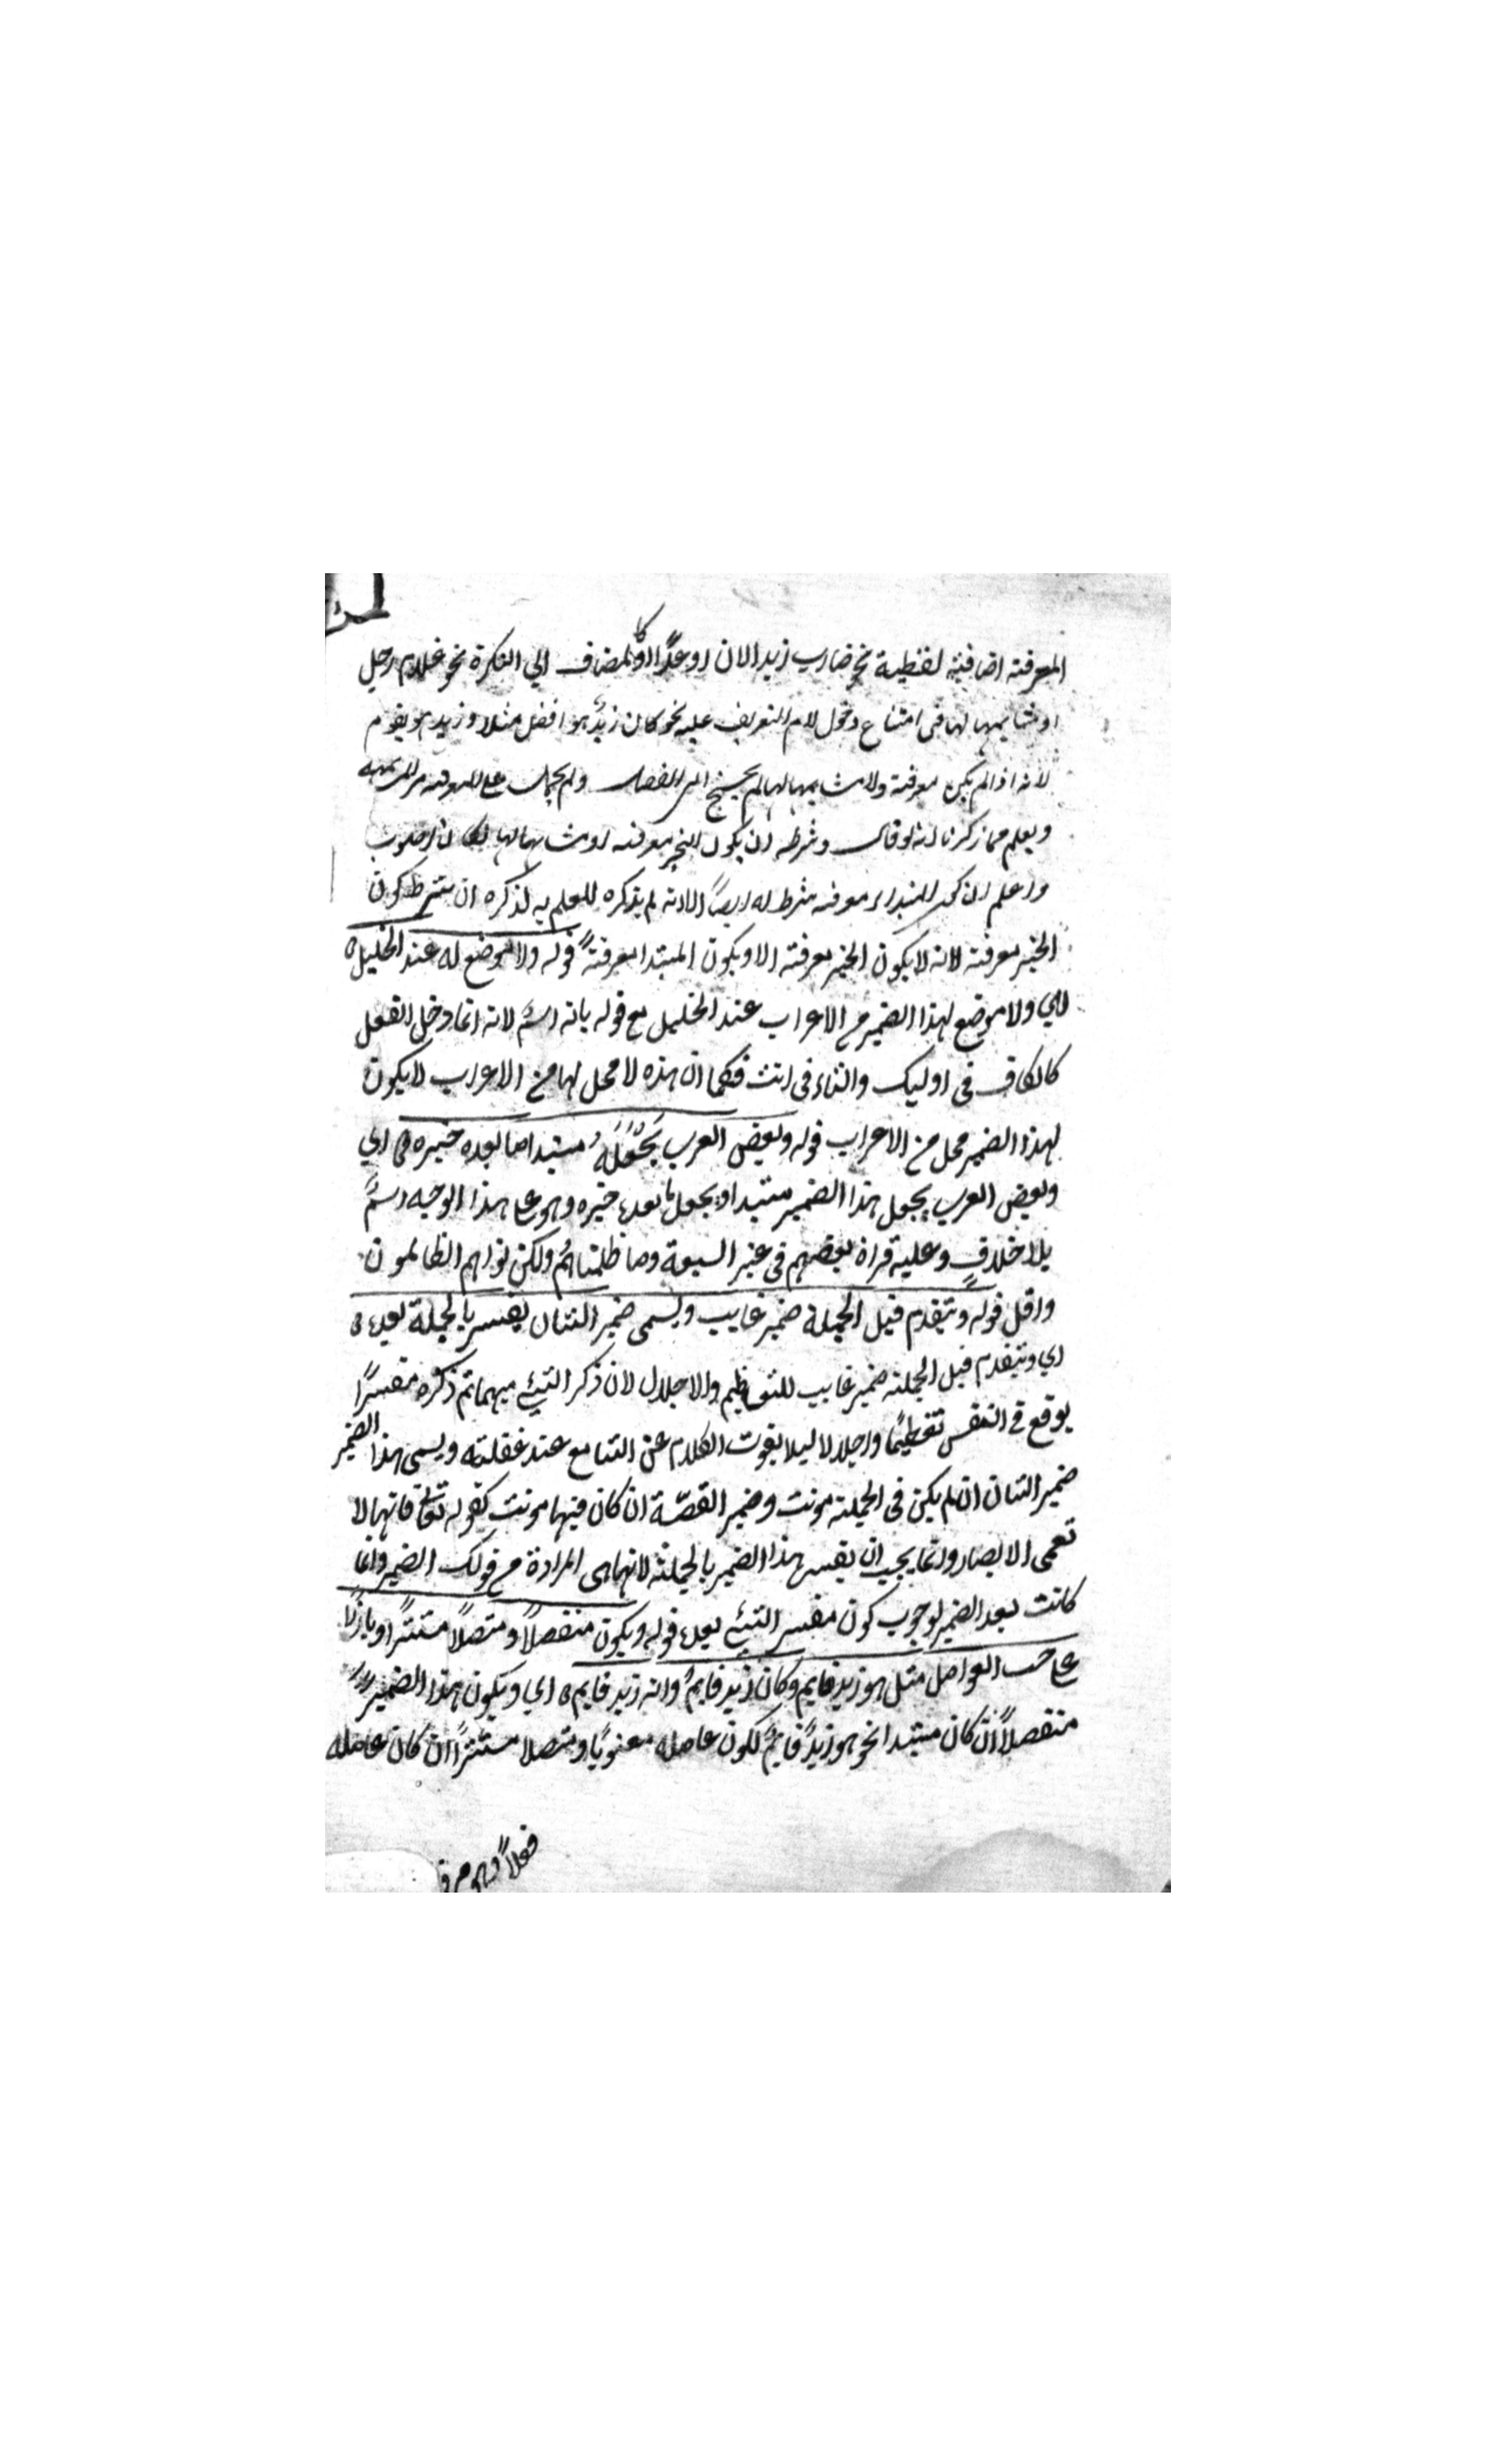 المعرفة اضافية لفظية نحو ضارب زيد الان او غدًا او المضاف الي النكرة نحو غلام رجل
او مشابهها لها فى امتناع دخول لام التعريف عليه نحو كان زيدٌ هو افضل مثلا و زيد هو يقوم
لانه اذا لم يكن معرفة ولا مشابهها لها لم يحتج الى الفصل ولم
ويعلم مما ذكرنا انه لو قال وشرطه ان يكون الخبر معرفة او مشابهها لها لكان اصوب
واعلم ان كون المبتداء معرفة شرط له ايضًا الا انه لم يذكره للعلم به لذكره ان شرط كون
الخبر معرفة لانه لا يكون الخبر معرفة الا ويكون المبتدا معرفةً قوله ولا موضع له عند الخليل ٥
اي ولا موضع لهذا الضمير من الاعراب عند الخليل مع قوله بانه اسمٌ لانه انما دخل الفعل
كالكاف فى اوليك والتاء فى انت فكما ان هذه لا محل لها من الاعراب لا يكون
لهذا الضمير محل من الاعراب قوله وبعض العرب يَجْعَلُهُ مبتدا ما بعده خبره ٥ اي
وبعض العرب يجعل هذا الضمير مبتدا ويجعل ما بعده خبره وهو على هذا الوجه اسمٌ
بلا خلافٍ وعليه قراة بعضهم فى غير السبعة وما ظلمناهُم ولكن كانوا هم الظالمون
واقل قوله ويتقدم قبل الجملة ضمير غايب ويسمى ضمير الشان يفسر بالجملة بعده ٥
اي ويتقدم قبل الجملة ضمير غايب للتعظيم والاجلال لان ذكر الشيئ مبهما ثم ذكره مفسرًا
يوقع فى النفس تعظيمًا واجلالا ليلا يفوت الكلام عن السامع عند غفلته ويسمى هذا الضمير
ضمير الشان ان لم يكن فى الجملة مونث وضمير القصّة ان كان فيها مونث كقوله تعالى فانها لا
تعمى الابصار وانما يجب ان يفسر هذا الضمير بالجملة لانها هى المرادة من قولك الضمير وانما
كانت بعد الضمير لوجوب كون مفسر الشيئ بعده قوله ويكون منفصلاً ومتصلاً مستترًا وبارزًا
على حسب العوامل مثل هو زيد قايم وكان زيد قايمٌ وانه زيد قايم ٥ اي ويكون هذا الضمير
منفصلاً ان كان مبتدا نحو هو زيدٌ قايمٌ لكون عامله معنويًا ومتصلا مستترًا ان كان عامله
فعلاً